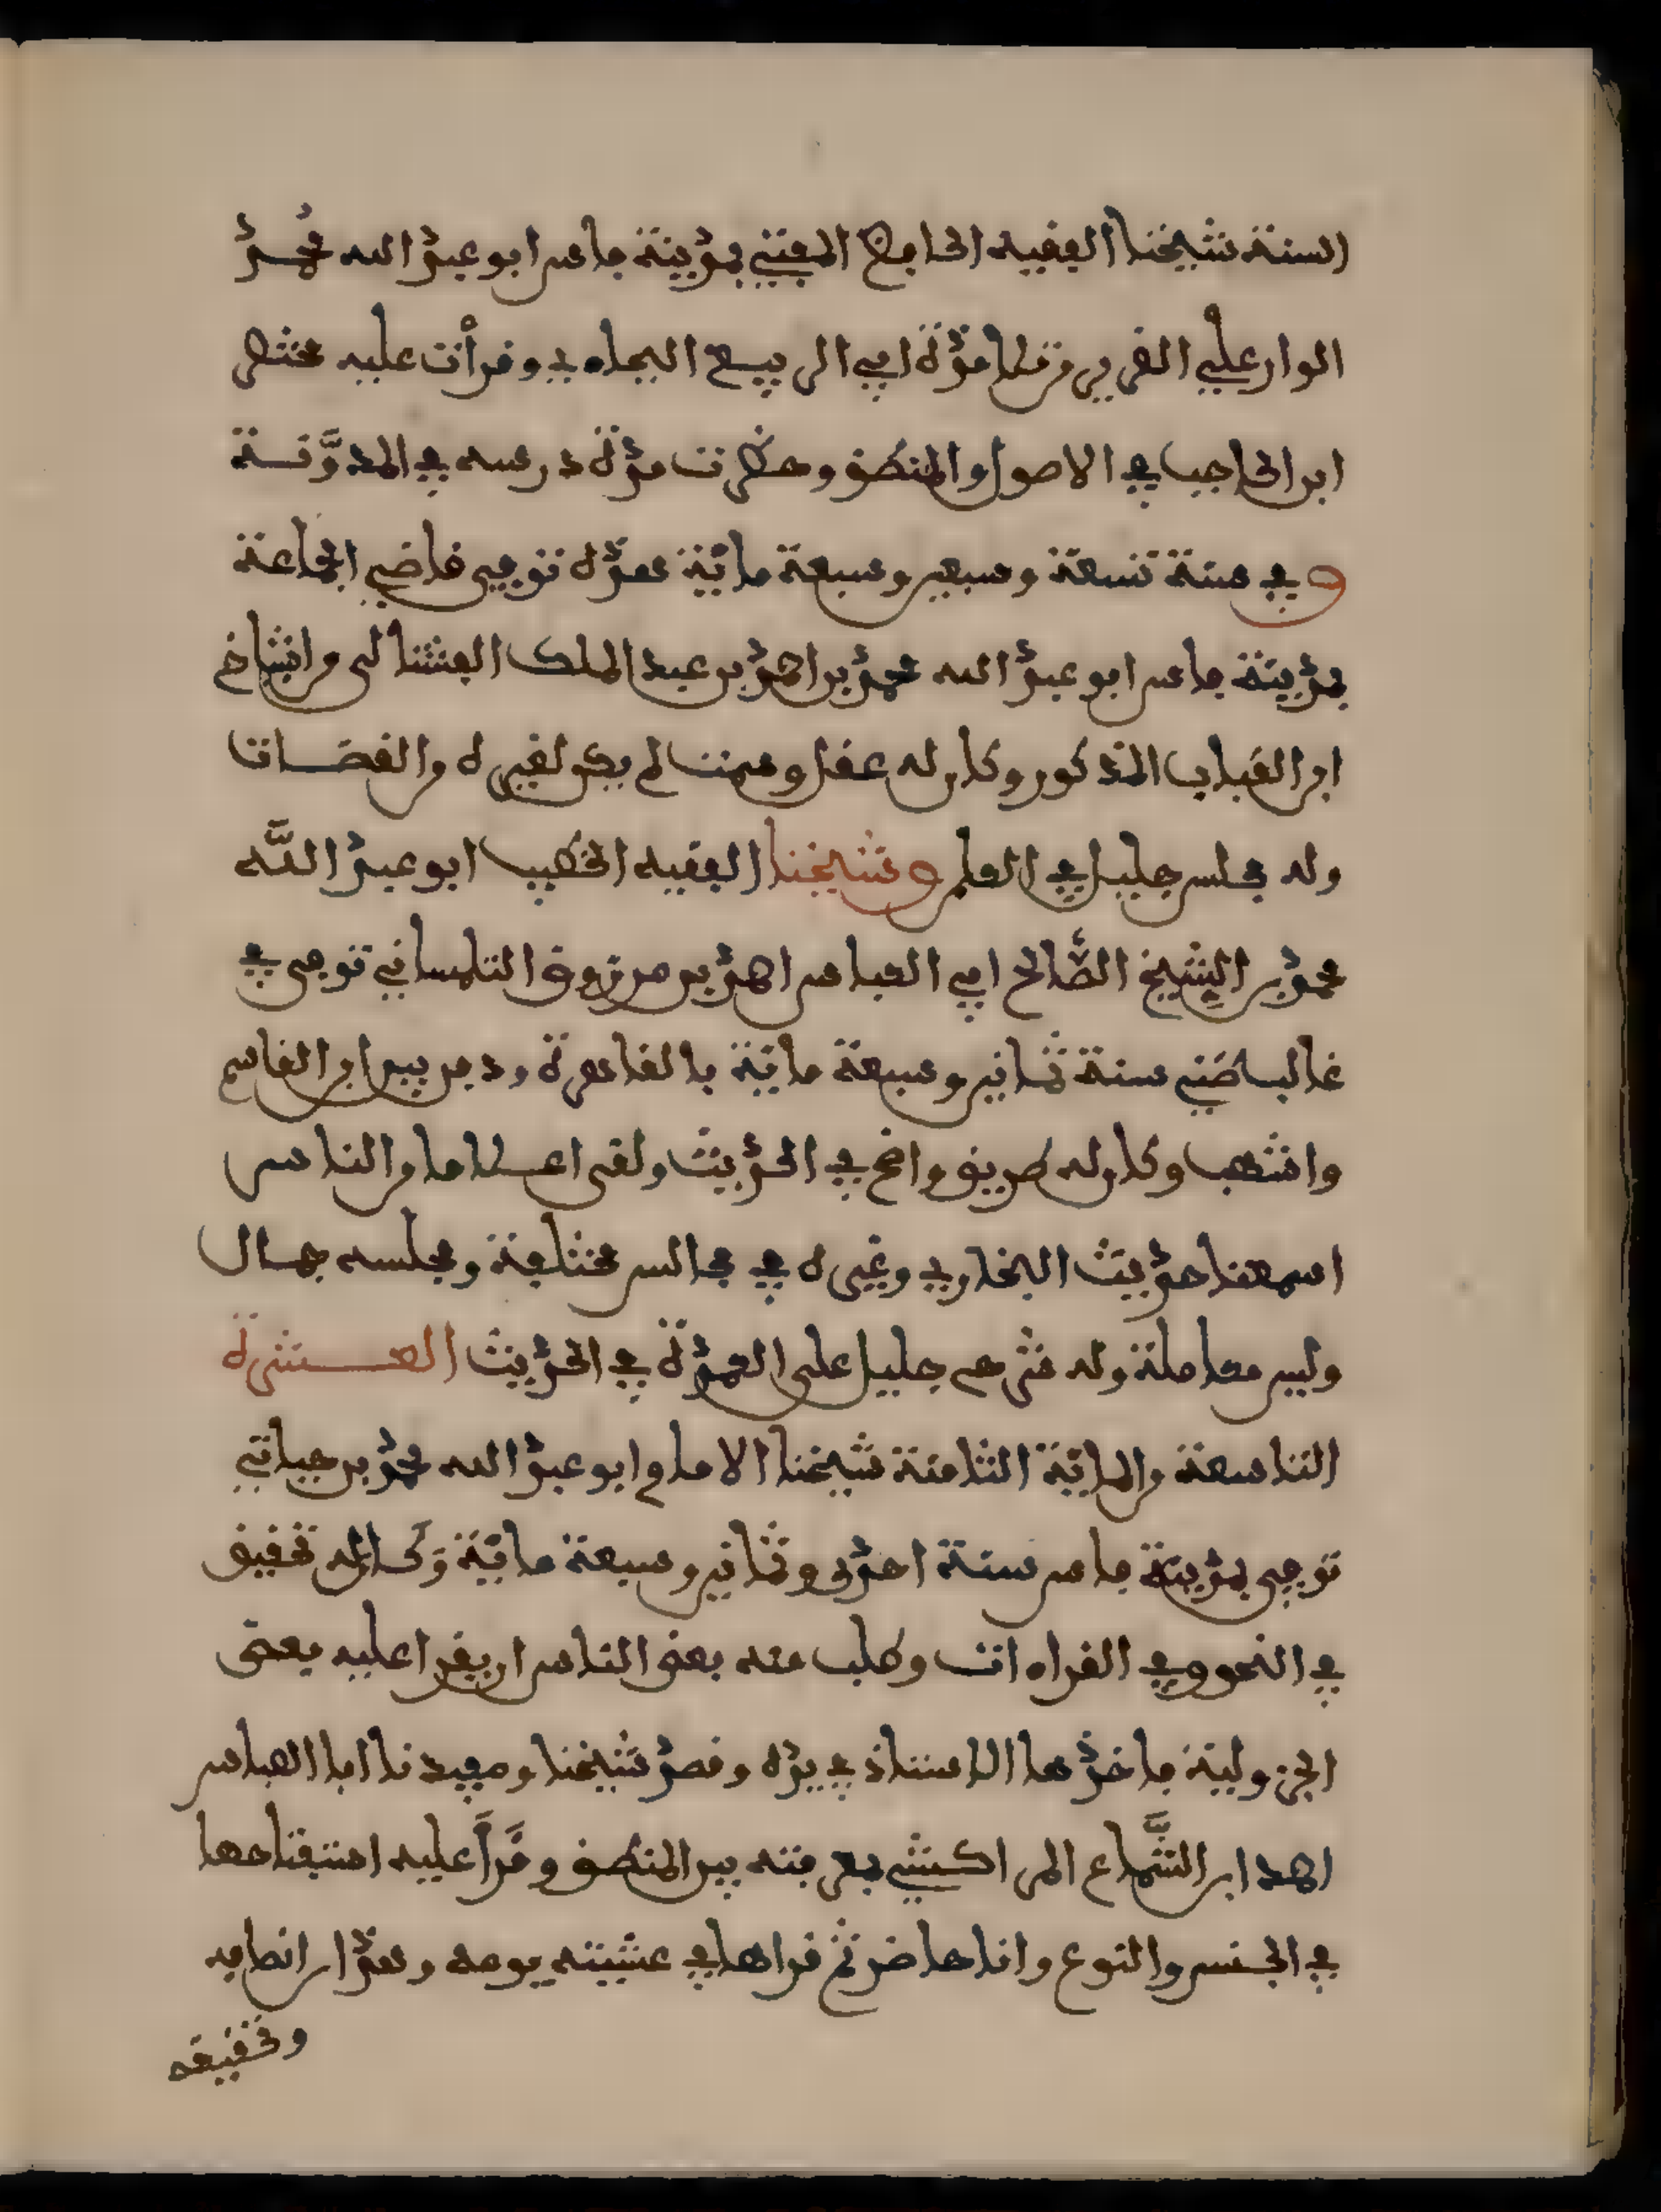 السنة شيخنا الفقيه الحافظ المفتي بمدينة فاس ابو عبد الله محمد
الوانغيلي الضرير من تلامذة ابي الربيع اللجاءي وقرأت عليه مختصر
ابن الحاجب في الاصول والمنطق وحضرت مدة درسه في المدوَّنة
وفي سنة تسعة وسبعين وسبعة مائة هذه توفي قاضي الجماعة
بمدينة فاس ابو عبد الله محمد بن احمد بن عبد الملك الفشتالي من اشياخ
ابن القباب المذكور وكان له عقل وسمت لم يكن لغيره من القضات
وله مجلس جليل في العلم وشيخنا الفقيه الخطيب ابو عبد اللَّه
محمد بن الشيخ الصَّالح ابي العباس احمد بن مرزوق التلمساني توفي في
غالب ظني سنة ثمانين وسبعة مائة بالقاهرة ودفن بين ابن القاسم
واشهب وكان له طريق واضح في الحديث ولقي اعلاما من الناس
اسمعنا حديث البخاري وغيره في مجالس مختلفة ومجلسه جمال
ولين معاملة وله شرح جليل على العمدة في الحديث العشرة
التاسعة من المائة الثامنة شيخنا الامام ابو عبد الله محمد بن حياتي
توفي بمدينة فاس سنة احدى وثمانين وسبعة مائة وَكان له تحقيق
في النحو وفي القراءات وطلب منه بعض الناس ان يقرا عليه يعني
الجزولية فاخذها الاستاذ في يده وقصد شيخنا ومفيدنا ابا العباس
احمد ابن الشَّماع المراكشي بمعرفته بين المنطق وقَرأَ عليه استفتاحها
في الجنس والنوع وانا حاضر ثم قراها في عشيته يومه وهذا من انصافه
وتحقيقه